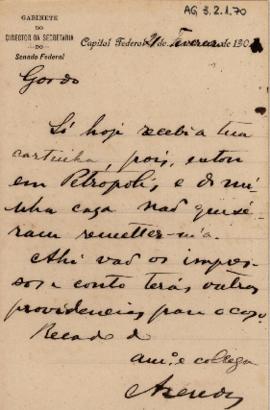 AG, 3.2.1.70
GABINETE
DO
DIRECTOR DA SECRETARIA
DO
Senado Federal
Capital Federal, 21 de Fevereiro de 190
Gordo
Só hoje recebi a tua
cartinha, pois, estou
em Petropolis, e de mi-
nha casa não quizé-
ram remetter-m'a.
Ahi vaõ os impres-
sos e conto terás outras
providencias para o caso.
Recado do
am.º e collega
Azeredo